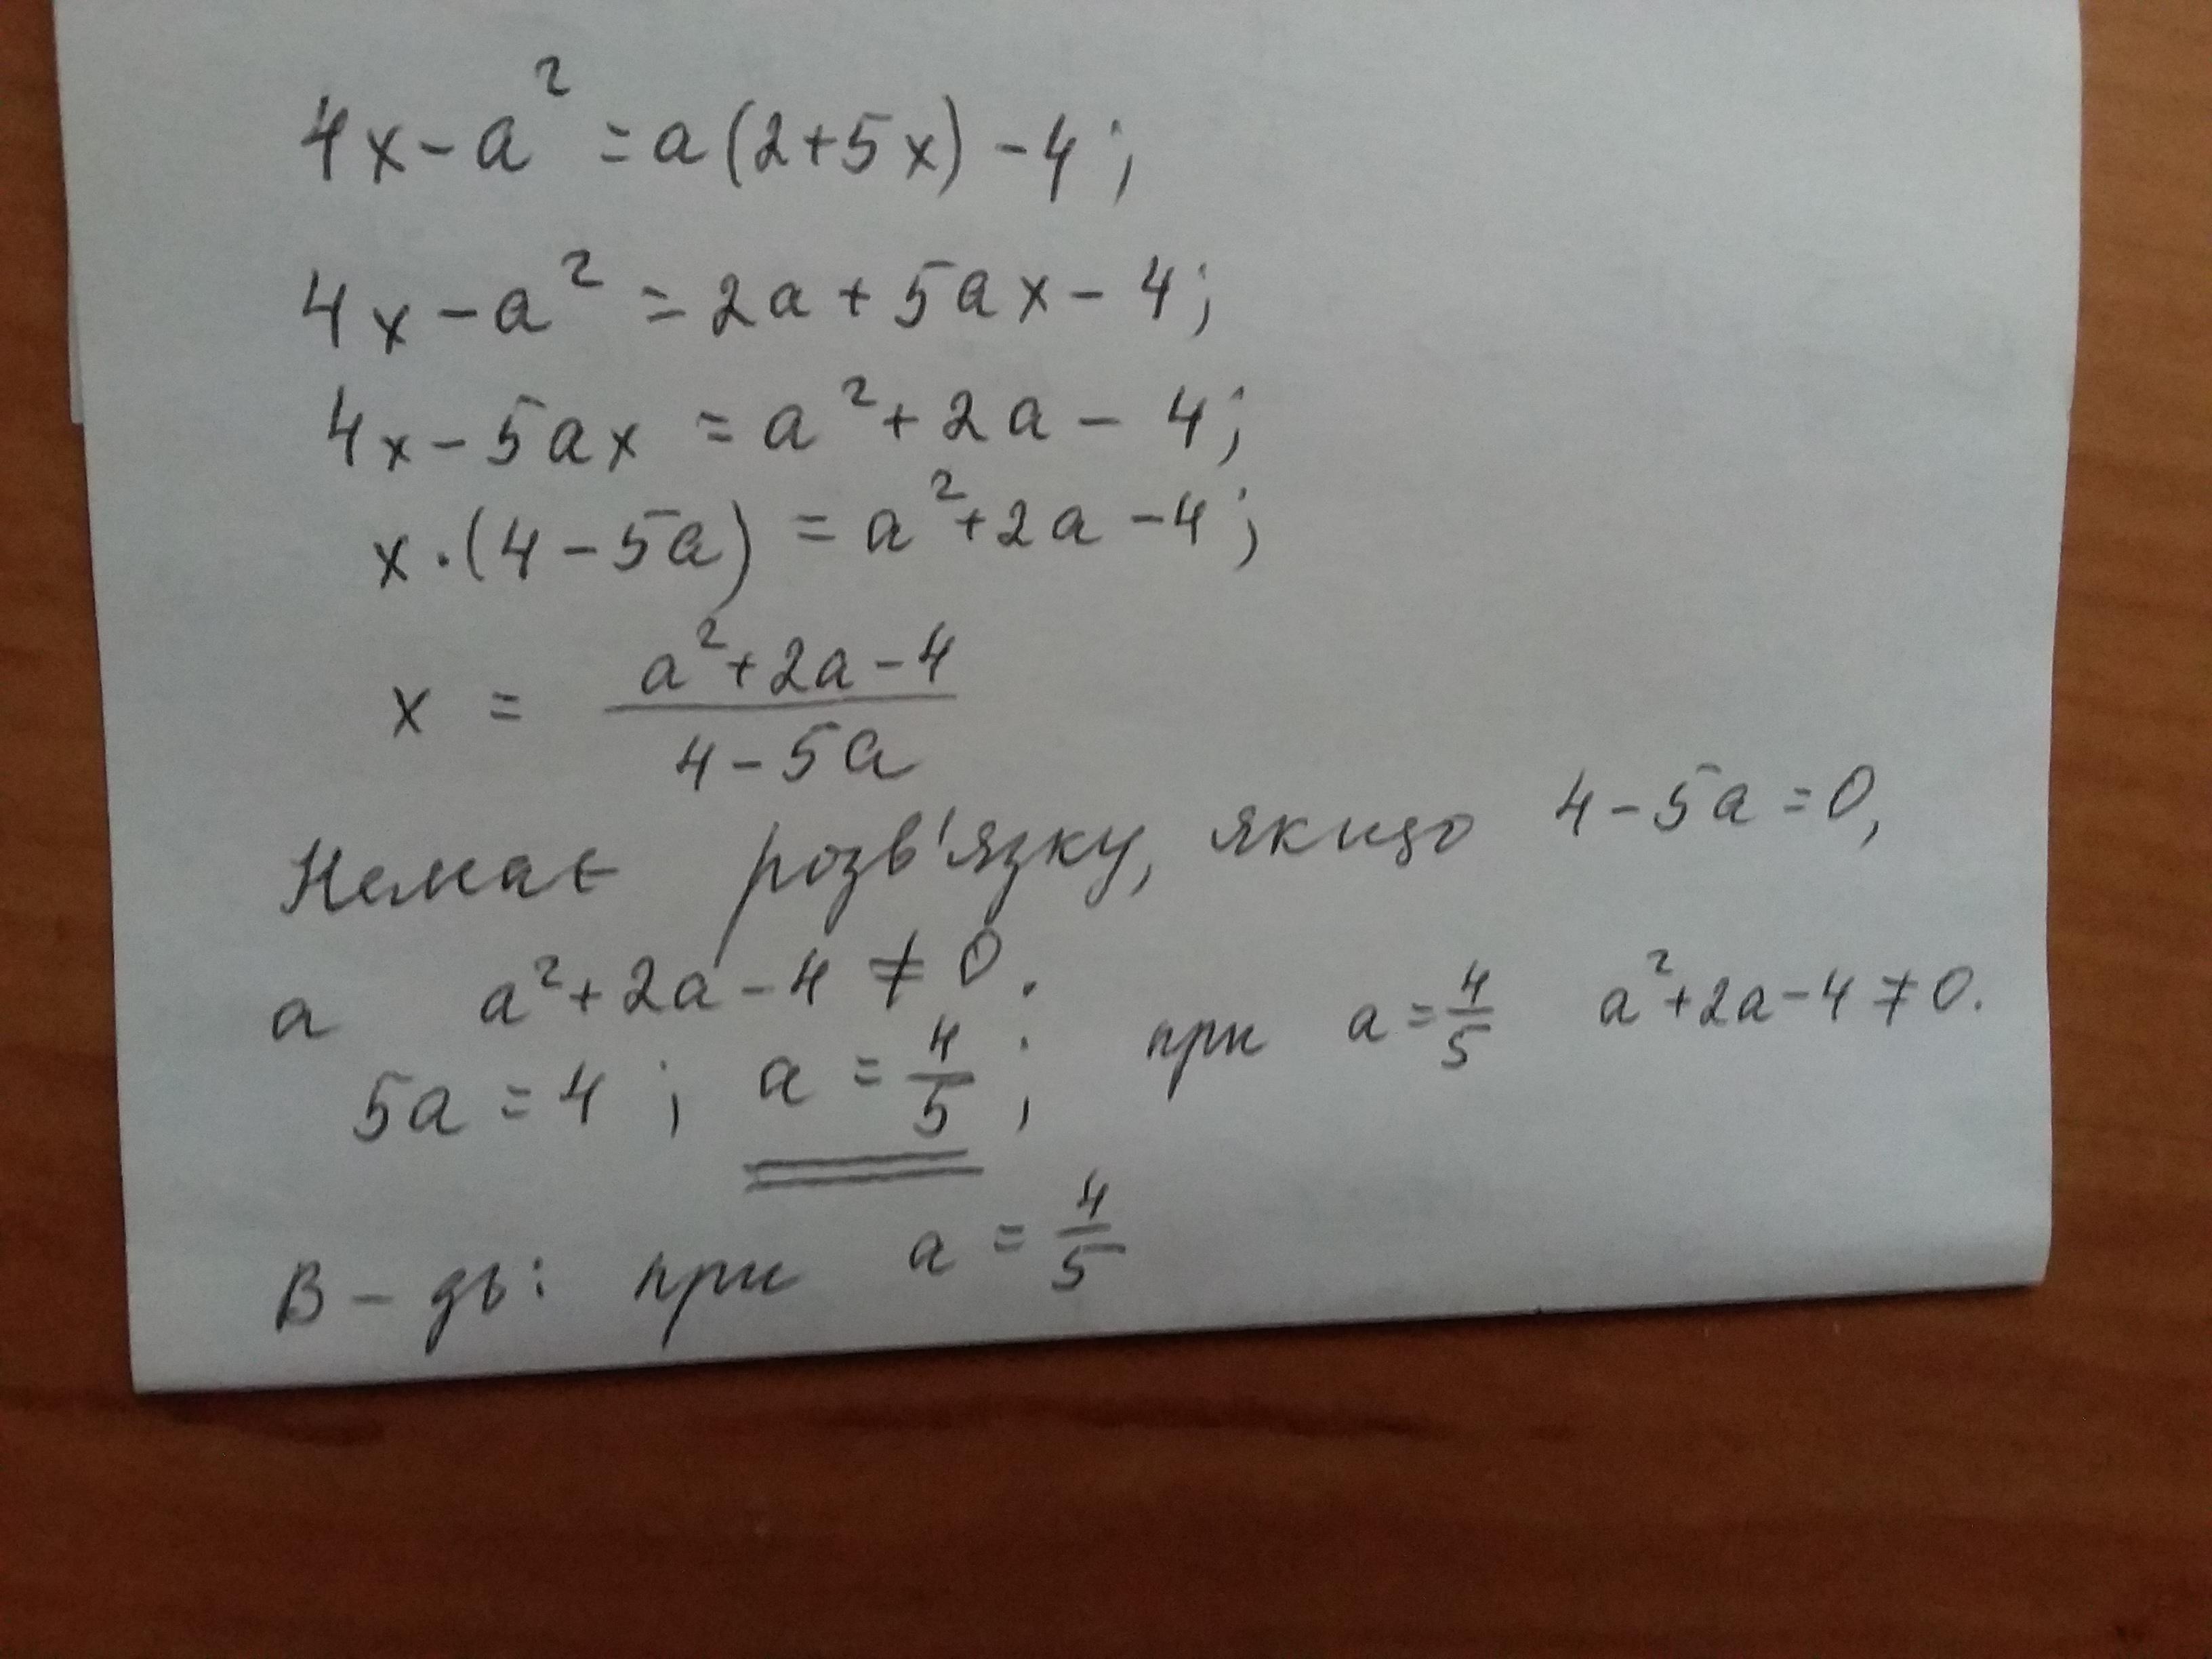 4x - a² = a(2+5x) - 4;
4x - a² = 2a + 5ax - 4;
4x - 5ax = a² + 2a - 4;
x·(4 - 5a) = a² + 2a - 4;
x = \frac{a² + 2a - 4}{4 - 5a}
Немає розв'язку, якщо 4 - 5a = 0,
а a² + 2a - 4 ≠ 0.
5a = 4; a = \frac{4}{5}; при a = \frac{4}{5} a² + 2a - 4 ≠ 0.
В-дь: при a = \frac{4}{5}